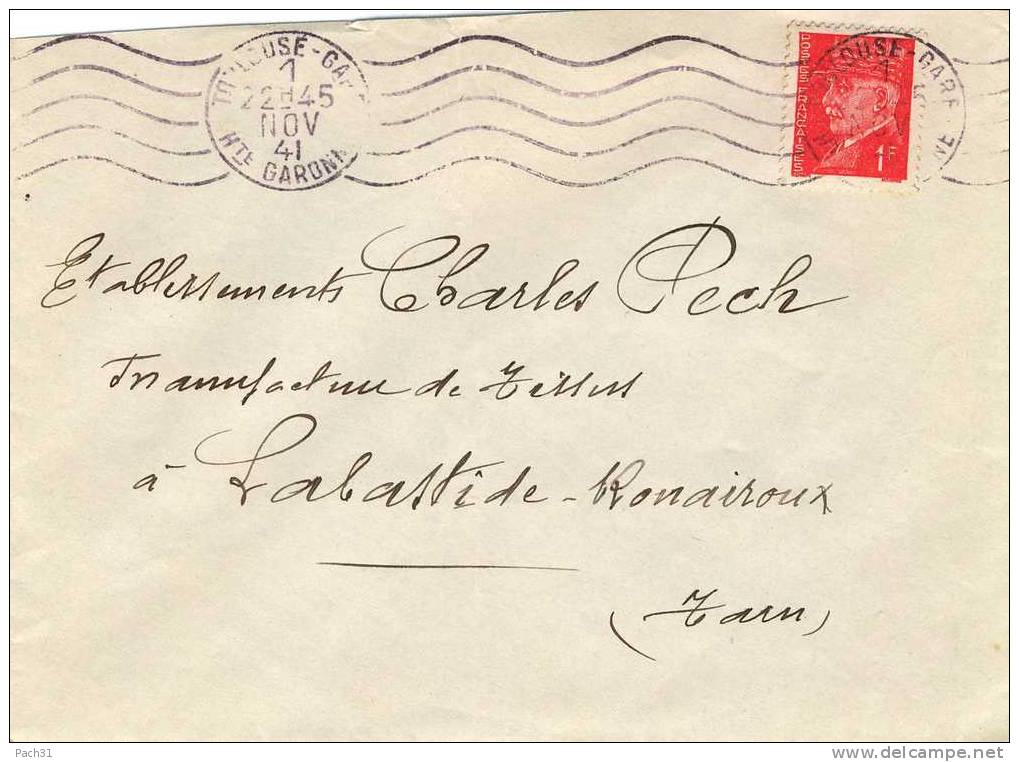 TOULOUSE-GARE
1
22H45
NOV
41
HTE GARONNE
TOULOUSE-GARE
1
POSTES FRANÇAISES
1F
Etablissements Charles Pech
Manufacture de Tissus
à Labastide-Rouairoux
(Tarn)
Pach31
www.delcampe.net